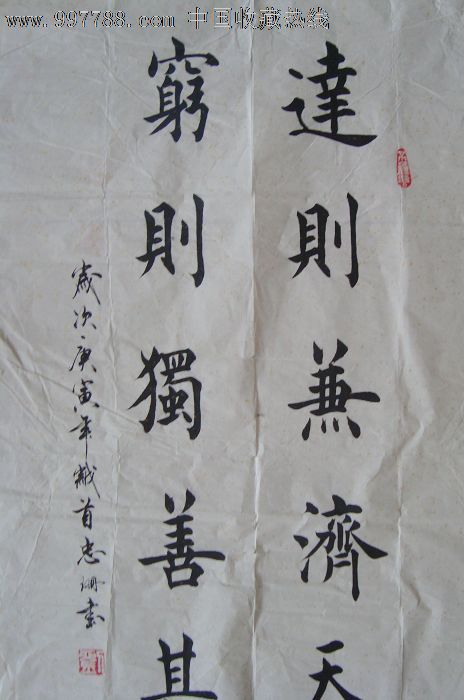 www.997788.com 中国收藏热线
達則兼濟天
窮則獨善其
歲次庚寅年歲首忠珊書